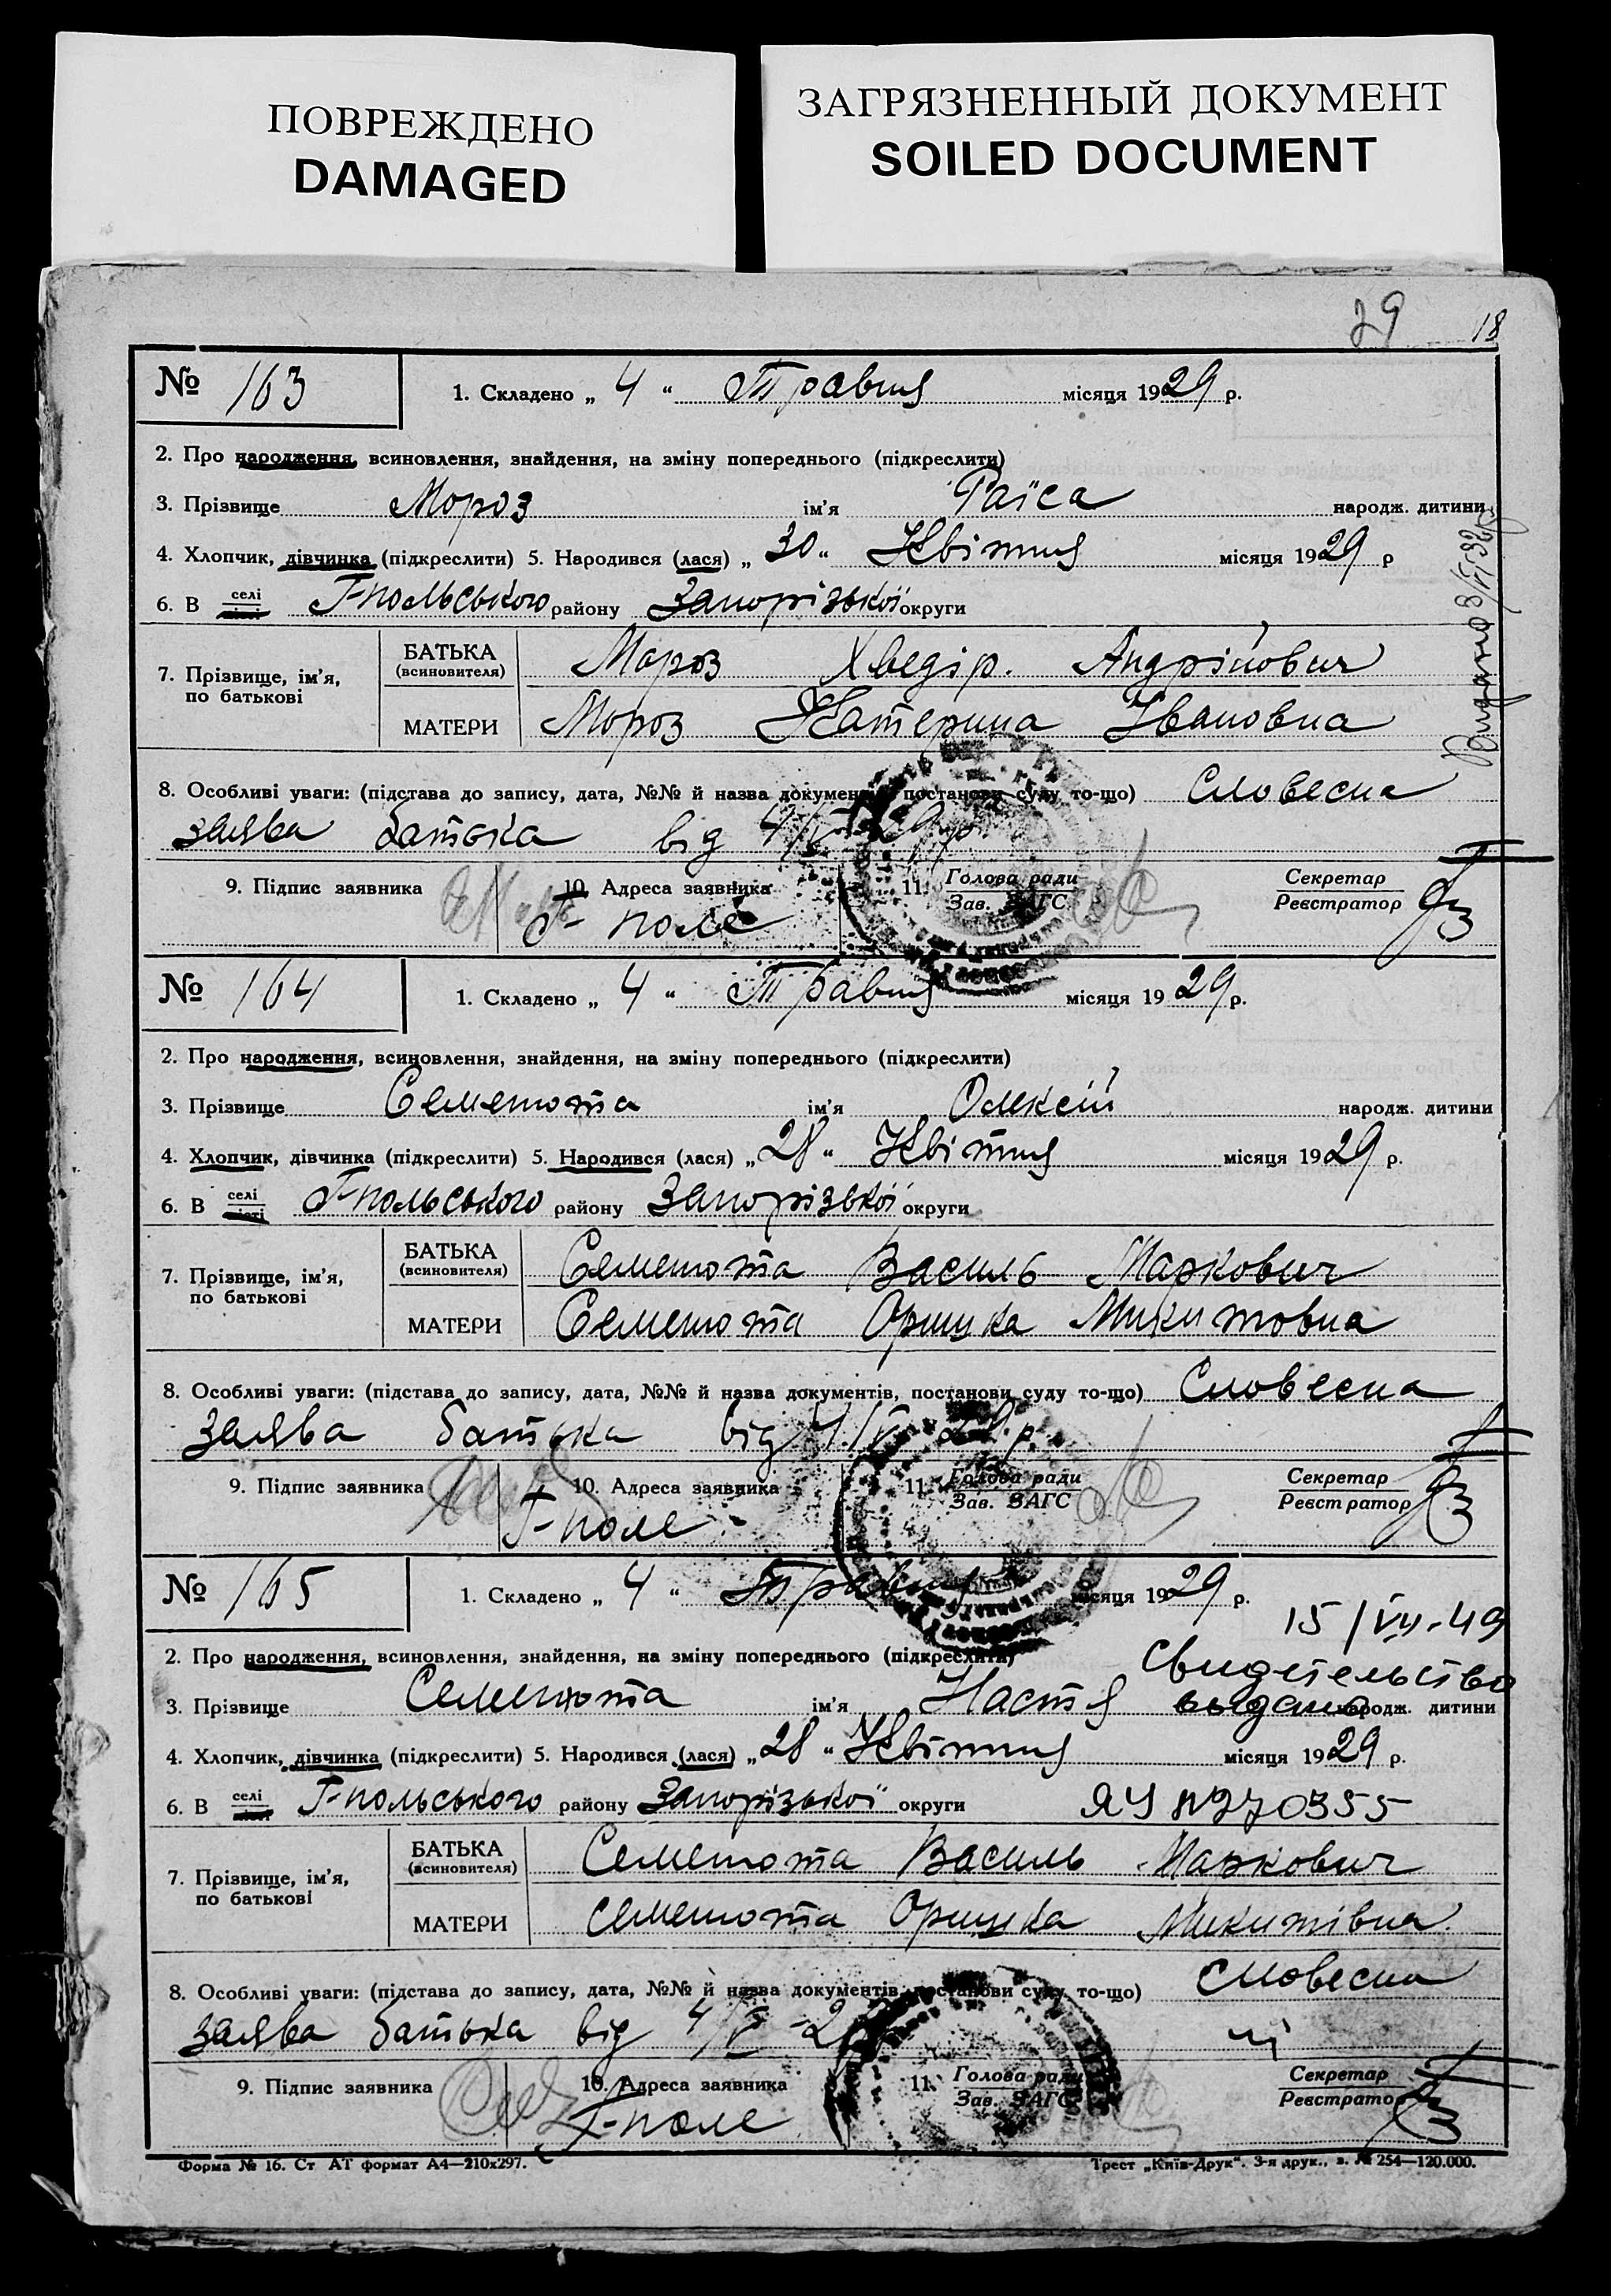 ПОВРЕЖДЕНО
DAMAGED
ЗАГРЯЗНЕННЫЙ ДОКУМЕНТ
SOILED DOCUMENT
29 18
№ 163 1. Складено „ 4 “ Травня місяця 1929 р.
2. Про народження, всиновлення, знайдення, на зміну попереднього (підкреслити)
3. Прізвище Мороз ім'я Раїса народж. дитини
4. Хлопчик, дівчинка (підкреслити) 5. Народився (лася) „ 30 “ Квітня місяця 1929 р
6. В селі місті Г-польського району Запорізької округи
Видано 8/VI 32 р
7. Прізвище, ім'я, по батькові
БАТЬКА (всиновителя) Мороз Хведір. Андрійович
МАТЕРИ Мороз Катерина Івановна
8. Особливі уваги: (підстава до запису, дата, №№ й назва документів, постанови суду то-що) Словесна
заява батька від 4/V 29 р.
9. Підпис заявника 10. Адреса заявника 11. Голова ради Секретар
Зав. ЗАГС Реєстратор
Г-поле
№ 164 1. Складено „ 4 “ Травня місяця 1929 р.
2. Про народження, всиновлення, знайдення, на зміну попереднього (підкреслити)
3. Прізвище Семенота ім'я Олексій народж. дитини
4. Хлопчик, дівчинка (підкреслити) 5. Народився (лася) „ 28 “ Квітня місяця 1929 р.
6. В селі місті Г-польського району Запорізької округи
7. Прізвище, ім'я, по батькові
БАТЬКА (всиновителя) Семенота Василь Маркович
МАТЕРИ Семенота Оришка Микитовна
8. Особливі уваги: (підстава до запису, дата, №№ й назва документів, постанови суду то-що) Словесна
заява батька від 4/V 29 р.
9. Підпис заявника 10. Адреса заявника 11. Голова ради Секретар
Зав. ЗАГС Реєстратор
Г-поле
№ 165 1. Складено „ 4 “ Травня місяця 1929 р.
15/VII-49
2. Про народження, всиновлення, знайдення, на зміну попереднього (підкреслити)
Свидетельство
3. Прізвище Семенота ім'я Настя выдано народж. дитини
4. Хлопчик, дівчинка (підкреслити) 5. Народився (лася) „ 28 “ Квітня місяця 1929 р.
6. В селі місті Г-польського району Запорізької округи ЯЧ №270355
7. Прізвище, ім'я, по батькові
БАТЬКА (всиновителя) Семенота Василь Маркович
МАТЕРИ Семенота Оришка Микитівна
8. Особливі уваги: (підстава до запису, дата, №№ й назва документів, постанови суду то-що) Словесна
заява батька від 4/V -29
9. Підпис заявника 10. Адреса заявника 11. Голова ради Секретар
Зав. ЗАГС Реєстратор
Г-поле
Форма № 16. Ст АТ формат А4—210x297. Трест „Київ-Друк“. 3-я друк., з. № 254—120.000.